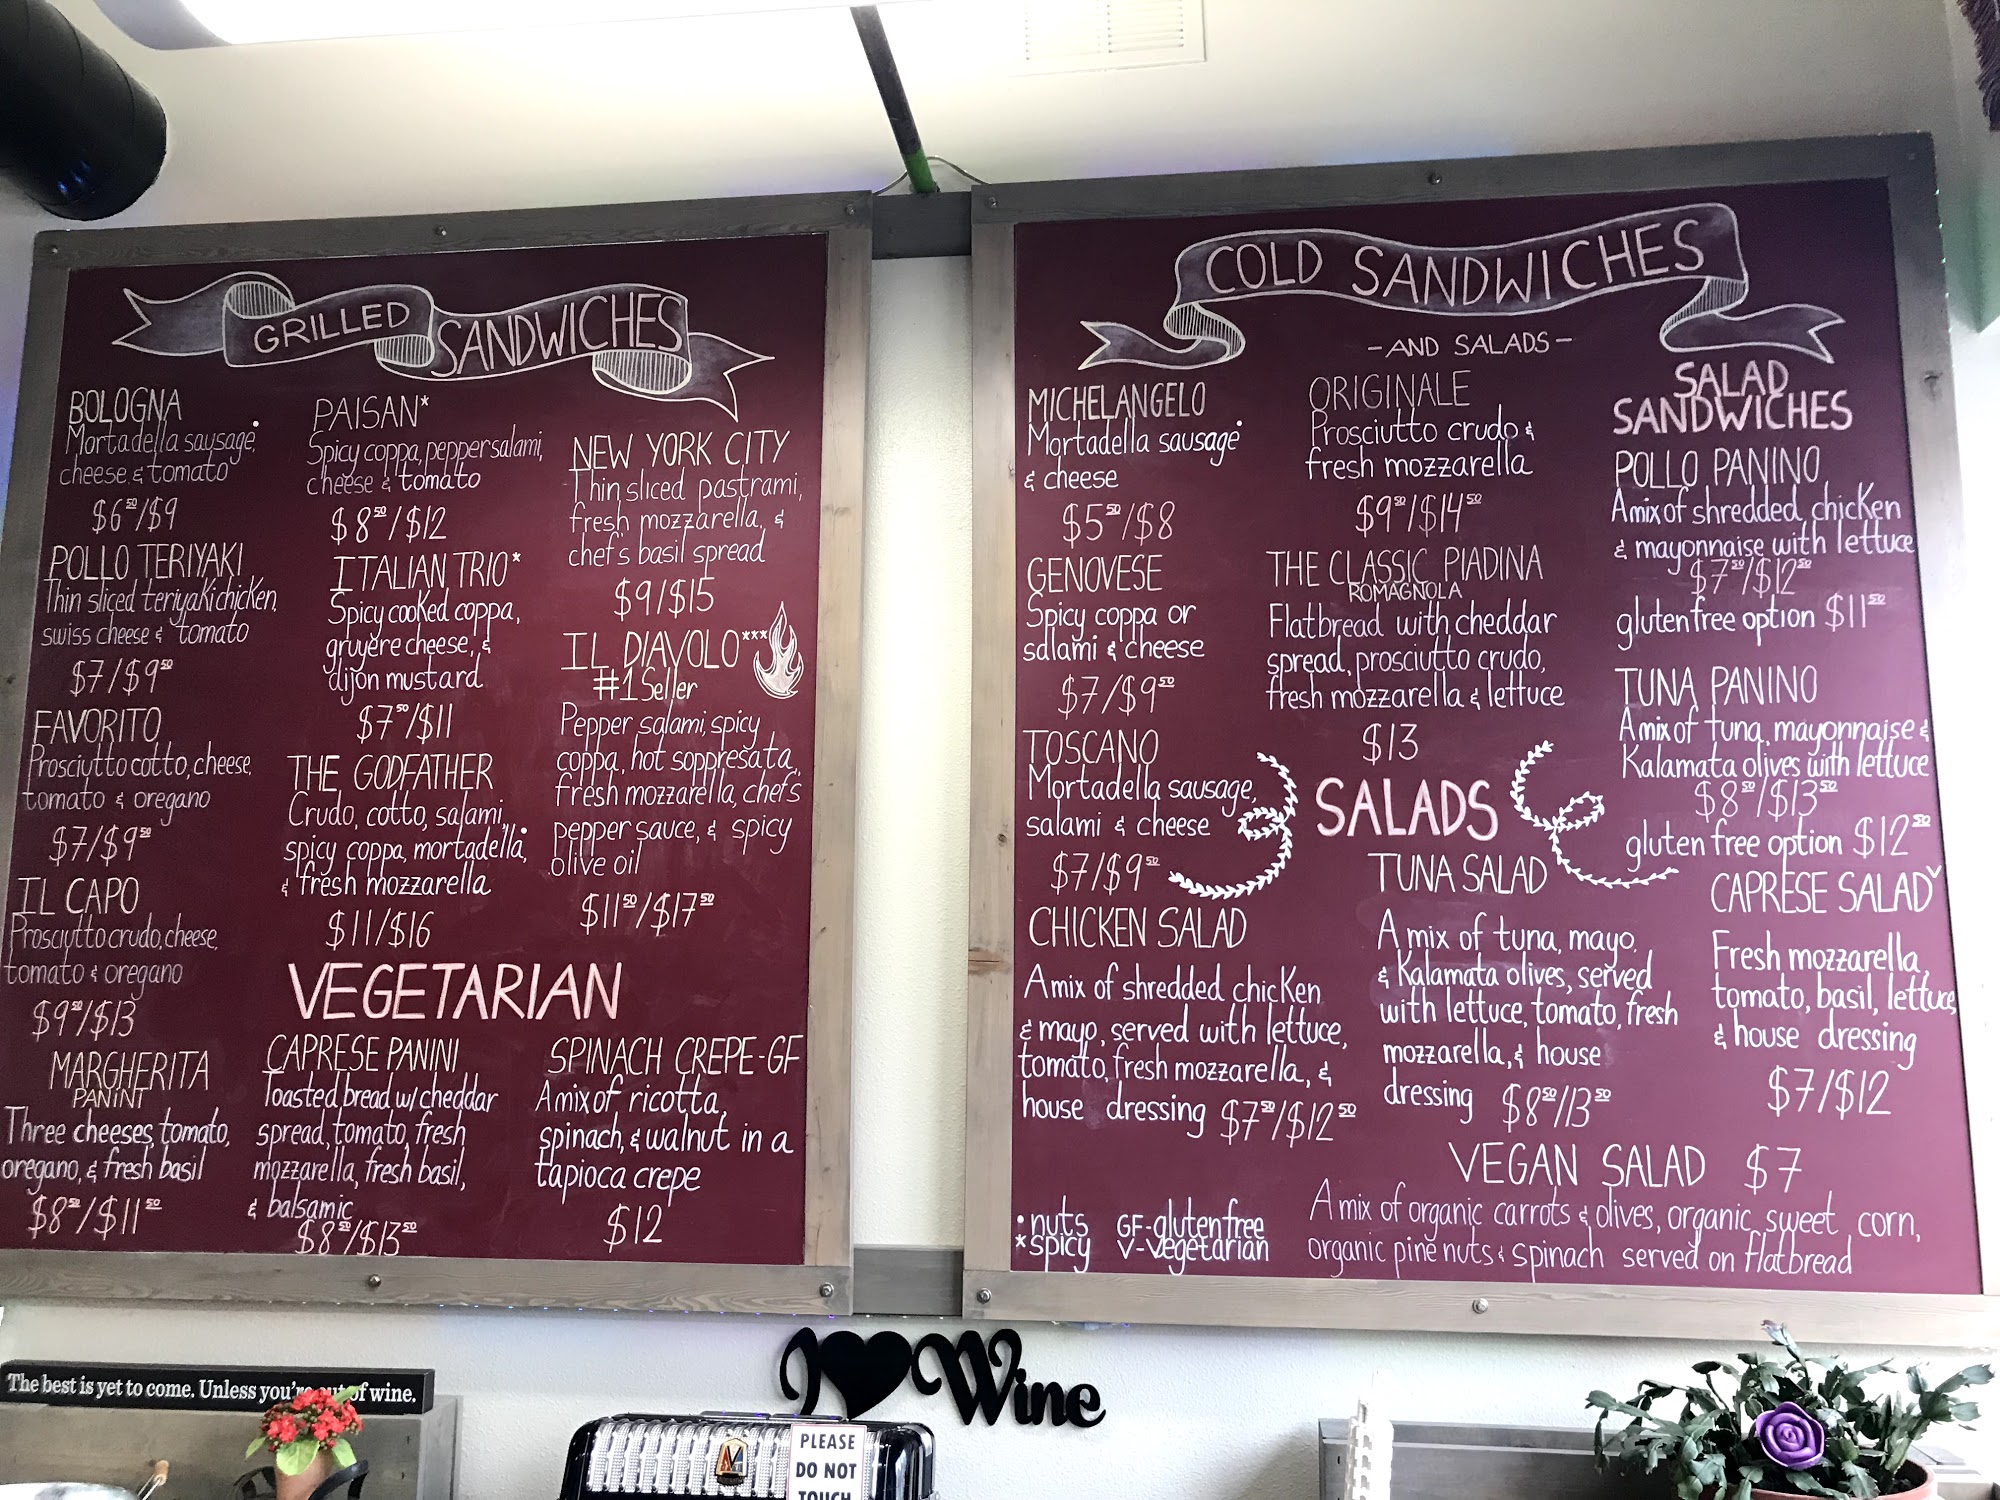 GRILLED SANDWICHES
BOLOGNA
Mortadella sausage,•
cheese & tomato
$6⁵⁰/$9
POLLO TERIYAKI
Thin sliced teriyaki chicken,
swiss cheese & tomato
$7/$9⁵⁰
FAVORITO
Prosciutto cotto, cheese,
tomato & oregano
$7/$9⁵⁰
IL CAPO
Prosciutto crudo, cheese,
tomato & oregano
$9⁵⁰/$13
MARGHERITA
PANINI
Three cheeses, tomato,
oregano, & fresh basil
$8⁵⁰/$11⁵⁰
PAISAN*
Spicy coppa, pepper salami,
cheese & tomato
$8⁵⁰/$12
ITALIAN TRIO*
Spicy cooked coppa,
gruyere cheese, &
dijon mustard
$7⁵⁰/$11
THE GODFATHER
Crudo, cotto, salami,
spicy coppa, mortadella,•
& fresh mozzarella
$11/$16
NEW YORK CITY
Thin sliced pastrami,
fresh mozzarella, &
chef's basil spread
$9/$15
IL DIAVOLO***
#1 Seller
Pepper salami, spicy
coppa, hot soppresata,
fresh mozzarella, chef's
pepper sauce, & spicy
olive oil
$11⁵⁰/$17⁵⁰
VEGETARIAN
CAPRESE PANINI
Toasted bread w/ cheddar
spread, tomato, fresh
mozzarella, fresh basil,
& balsamic
$8⁵⁰/$13⁵⁰
SPINACH CREPE-GF
A mix of ricotta,
spinach, & walnut in a
tapioca crepe
$12
COLD SANDWICHES
-AND SALADS-
MICHELANGELO
Mortadella sausage•
& cheese
$5⁵⁰/$8
GENOVESE
Spicy coppa or
salami & cheese
$7/$9⁵⁰
TOSCANO
Mortadella sausage,
salami & cheese
$7/$9⁵⁰
ORIGINALE
Prosciutto crudo &
fresh mozzarella
$9⁵⁰/$14⁵⁰
THE CLASSIC PIADINA
ROMAGNOLA
Flatbread with cheddar
spread, prosciutto crudo,
fresh mozzarella & lettuce
$13
SALAD
SANDWICHES
POLLO PANINO
A mix of shredded chicken
& mayonnaise with lettuce
$7⁵⁰/$12⁵⁰
gluten free option $11⁵⁰
TUNA PANINO
A mix of tuna, mayonnaise &
Kalamata olives with lettuce
$8⁵⁰/$13⁵⁰
gluten free option $12⁵⁰
SALADS
CHICKEN SALAD
A mix of shredded chicken
& mayo, served with lettuce,
tomato, fresh mozzarella, &
house dressing $7⁵⁰/$12⁵⁰
TUNA SALAD
A mix of tuna, mayo,
& Kalamata olives, served
with lettuce, tomato, fresh
mozzarella, & house
dressing $8⁵⁰/13⁵⁰
CAPRESE SALADᵛ
Fresh mozzarella,
tomato, basil, lettuce
& house dressing
$7/$12
VEGAN SALAD $7
A mix of organic carrots & olives, organic sweet corn,
organic pine nuts & spinach served on flatbread
•nuts GF-gluten free
*spicy V-Vegetarian
The best is yet to come. Unless you're out of wine.
I Wine
PLEASE
DO NOT
TOUCH